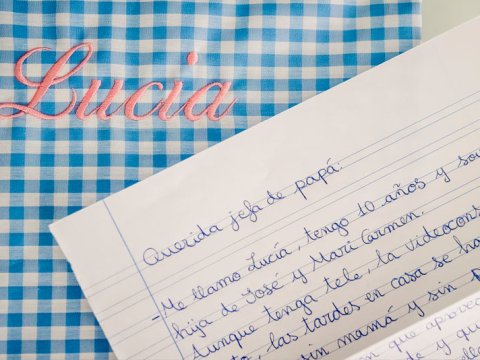 Lucia
Querida jefa de papá:
-Me llamo Lucía, tengo 10 años y soy
hija de José y Mari Carmen.
Aunque tenga tele, la videocons
las tardes en casa se ha
sin mamá y sin
que aprovec
y que